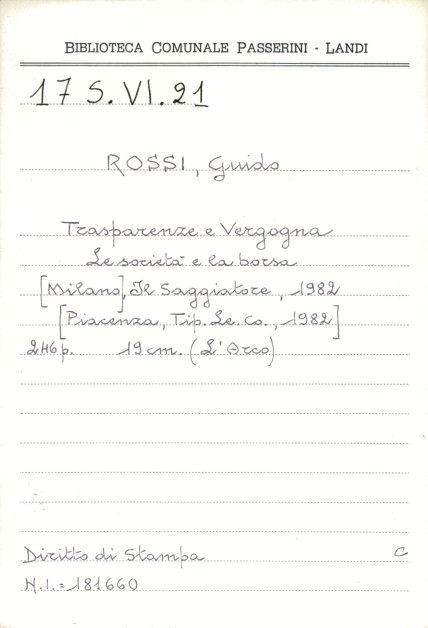 BIBLIOTECA COMUNALE PASSERINI - LANDI
17 S. VI. 21
ROSSI, Guido
Trasparenze e Vergogna
Le società e la borsa
[Milano], Il Saggiatore, 1982
[Piacenza, Tip. Le. Co., 1982]
246 p. 19 cm. (L'Arco)
Diritto di Stampa C
N.I. = 181660